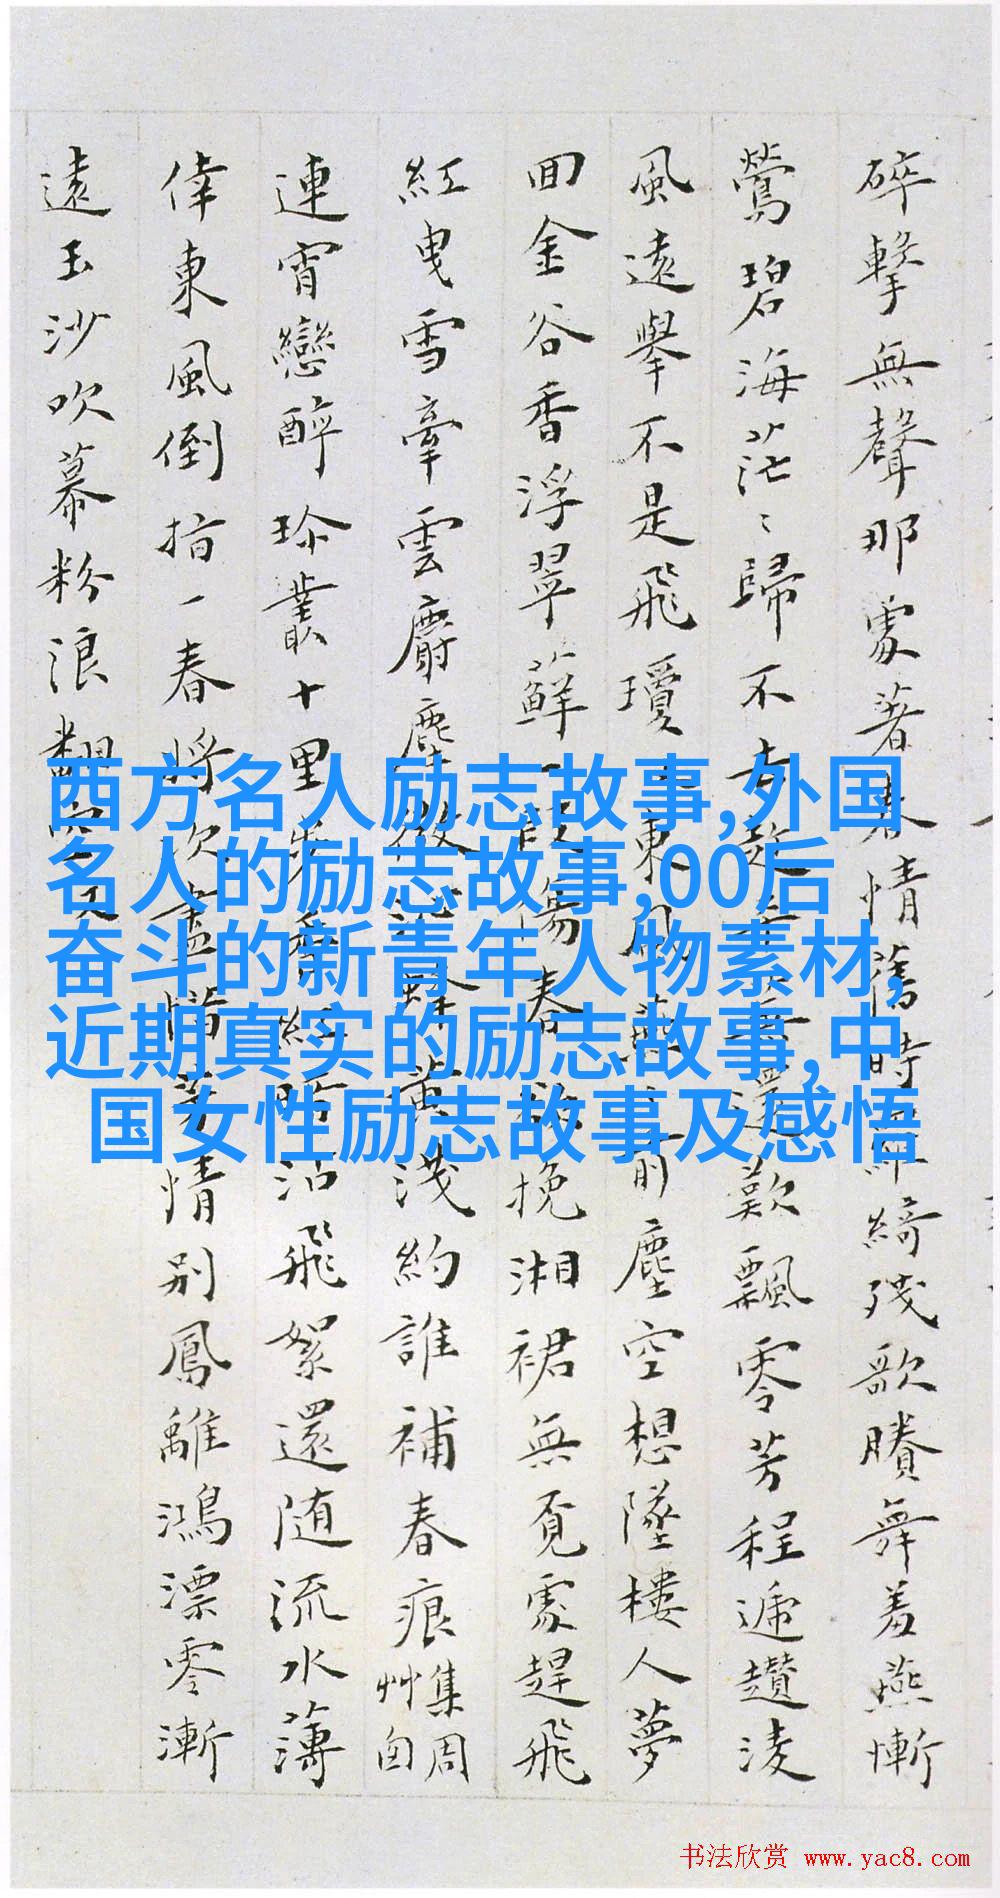 碎擊無聲那處著春情舊時羅綺殘歌賸舞羞燕慚
鶯碧海茫〻歸不去歎飄零芳程遞趲淩
風遠舉不是飛瓊東風前塵空想墜樓人夢
回金谷香浮翠蘚一段傷春挽湘裙無覓處趕飛
紅曳雪牽雲麝塵黃淺約誰補春痕
集周
艸囪
連宵戀醉珍叢十里沾飛絮還隨流水薄
倖東風倒指一春將次盡惜芳情別鳳離鴻漂零漸
遠玉沙吹幕粉浪翻空
西方名人励志故事,外国
名人的励志故事,00后
奋斗的新青年人物素材,
近期真实的励志故事,中
国女性励志故事及感悟
书法欣赏 www.yac8.com